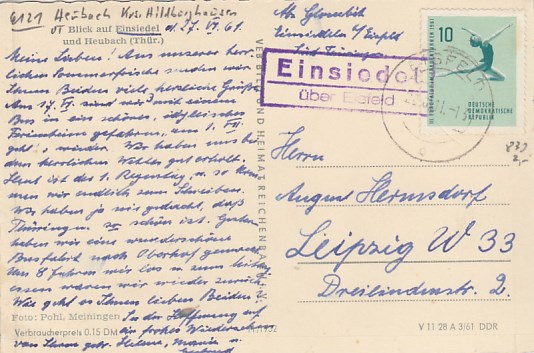 6121 Heubach Krs. Hildburghausen
Blick auf Einsiedel
und Heubach (Thür.)
d. 27. VI. 61.
Meine Lieben! Aus unserer herr-
lichen Sommerfrische senden wir
Ihnen Beiden viele herzliche Grüße.
Am 17. VI. sind wir mit einem
Bus in ein schönes, idyllisches
Ferienheim gefahren, am 1. VII.
geht's wieder. Wir haben uns bei
dem herrlichen Wetter gut erholt.
Heut ist der 1. Regentag, u. so kom-
men wir endlich zum Schreiben.
Wir haben ja nie gedacht, daß
Thüringen so schön ist. Gestern
haben wir eine wunderschöne
Busfahrt nach Oberhof gemacht.
Um 8 fuhren wir los u. zum Mittag-
essen waren wir wieder zurück.
Wie geht es Ihnen lieben Beiden?
In der Hoffnung auf
ein frohes Wiedersehen
Helene, Maria u.
Foto: Pohl, Meiningen
Verbraucherpreis 0.15 DM
VEB BILD UND HEIMAT REICHENBACH I. V.
Abs.
Einsiedel
über Eisfeld
EISFELD
10
DEUTSCHE
DEMOKRATISCHE
REPUBLIK
Herrn
August Hermsdorf
Leipzig W 33
Dreilindenstr. 2
V 11 28 A 3/61 DDR